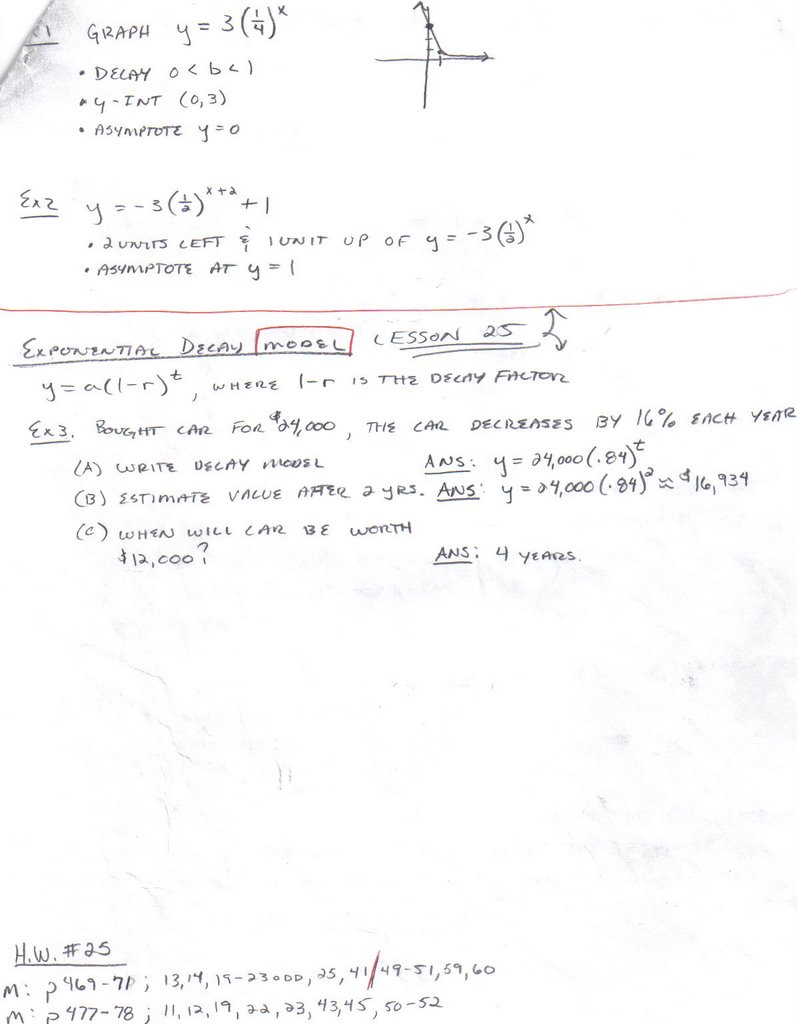 1 GRAPH y = 3(1/4)^x
• DECAY 0 < b < 1
• y-INT (0,3)
• ASYMPTOTE y = 0
Ex2 y = -3(1/2)^(x+2) + 1
• 2 UNITS LEFT & 1 UNIT UP OF y = -3(1/2)^x
• ASYMPTOTE AT y = 1
EXPONENTIAL DECAY MODEL LESSON 25
y = a(1-r)^t, WHERE 1-r IS THE DECAY FACTOR
Ex3. BOUGHT CAR FOR $24,000, THE CAR DECREASES BY 16% EACH YEAR
(A) WRITE DECAY MODEL ANS: y = 24,000(.84)^t
(B) ESTIMATE VALUE AFTER 2 YRS. ANS: y = 24,000(.84)^2 ≈ $16,934
(C) WHEN WILL CAR BE WORTH
$12,000? ANS: 4 YEARS.
H.W. #25
M: p469-71; 13,14, 19-23 ODD, 25, 41/49-51, 59, 60
M: p477-78; 11, 12, 19, 22, 23, 43, 45, 50-52